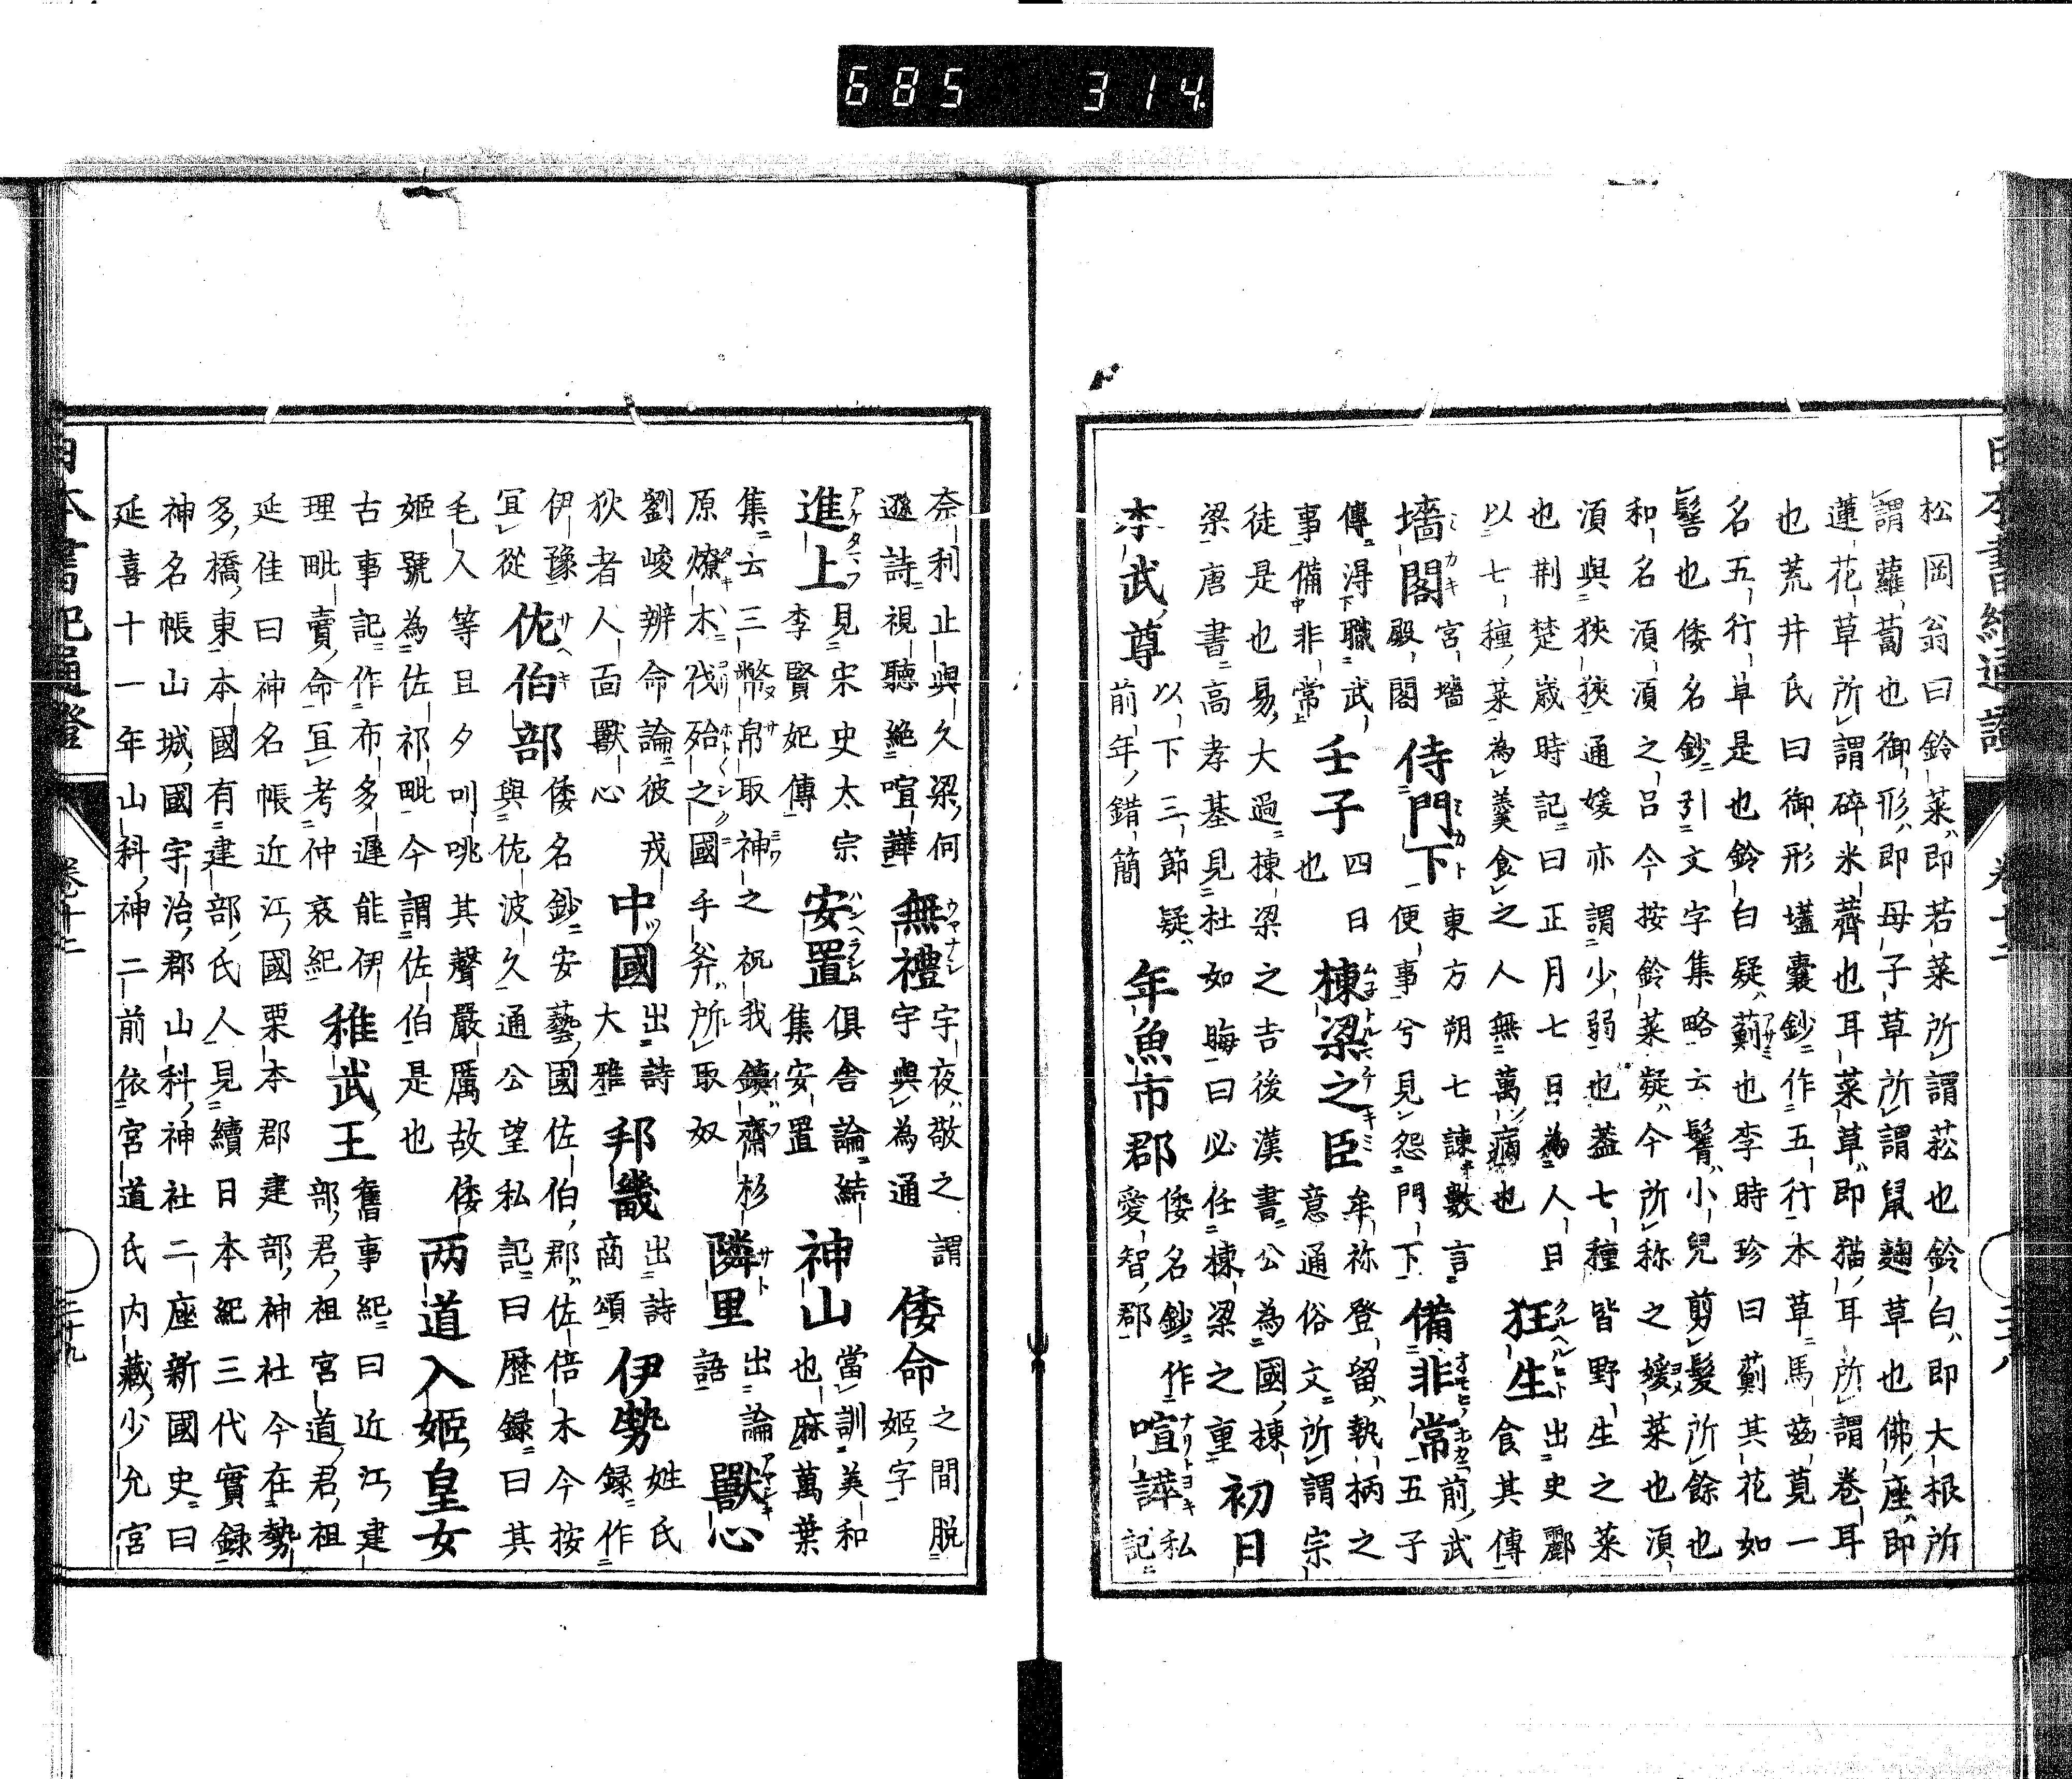 685 314
松岡翁曰鈴菜即若菜所謂菘也鈴白即大根所
謂蘿蔔也御形即母子草所謂鼠麹草也佛座即
蓮花草所謂碎米薺也耳菜草即猫耳所謂巻耳
也荒井氏曰御形壒囊鈔作五行本草馬莧一
名五行草是也鈴白疑薊也李時珍曰薊其花如
髻也倭名鈔引文字集略云鬠小兒剪髮所餘也
和名須須之呂今按鈴菜疑今所称之媛菜也須
須與狹狹通媛亦謂少弱也蓋七種皆野生之菜
也荆楚歳時記曰正月七日為人日 狂生 出史酈
以七種菜為羹食之人無萬病也 食其傳
墻閣 宮墻殿閣 侍門下 東方朔七諫數言便事兮見怨門下 備非常 前武五子
傳得職武事備非常 壬子 四日也 棟梁之臣 牟祢登留執柄之意通俗文所謂宗
徒是也易大過棟梁之吉後漢書公為國棟
梁唐書高孝基見杜如晦曰必任棟梁之重 初日
李武尊 以下三節疑前年錯簡 年魚市郡 倭名鈔作愛智郡 喧譁 私記
奈利止與久梁何遜詩視聽絶喧譁 無禮 宇夜敬之謂宇與為通 倭命 之間脱姫字
進上 見宋史太宗李賢妃傳 安置 俱舎論結集安置 神山 當訓美和也麻萬葉
集云三幣帛取神之祝我鎮齋杉原燎木伐殆之國手斧所取奴 隣里 出論語 獸心
劉峻辨命論彼戎狄者人面獸心 中國 出詩大雅 邦畿 出詩商頌 伊勢 姓氏録作
伊豫 佐伯部 倭名鈔安藝國佐伯郡佐倍木今按
宜從 與佐波久通公望私記曰歴録曰其
毛人等旦夕叫咷其聲嚴厲故倭 两道入姫皇女
姬號為佐祁毗今謂佐伯是也
古事記作布多遲能伊理毗賣命宜考仲哀紀 稚武王 舊事紀曰近江建部君祖宮道君祖
延佳曰神名帳近江國栗本郡建部神社今在勢
多橋東本國有建部氏人見續日本紀三代實録
神名帳山城國宇治郡山科神社二座新國史曰
延喜十一年山科神二前依宮道氏内藏少允宮
日本書紀通證
卷十二
二十九